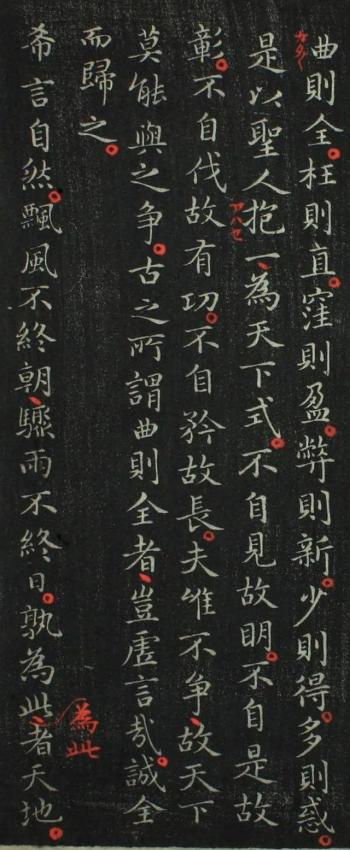 曲則全。枉則直。窪則盈。弊則新。少則得。多則惑。
是以聖人抱一、為天下式。不自見故明。不自是故
アハセ
彰。不自伐故有功。不自矜故長。夫唯不争、故天下
莫能與之争。古之所謂曲則全者、豈虛言哉。誠全
而歸之。
希言自然。飄風不終朝、驟雨不終日。孰為此、者天地。
為此